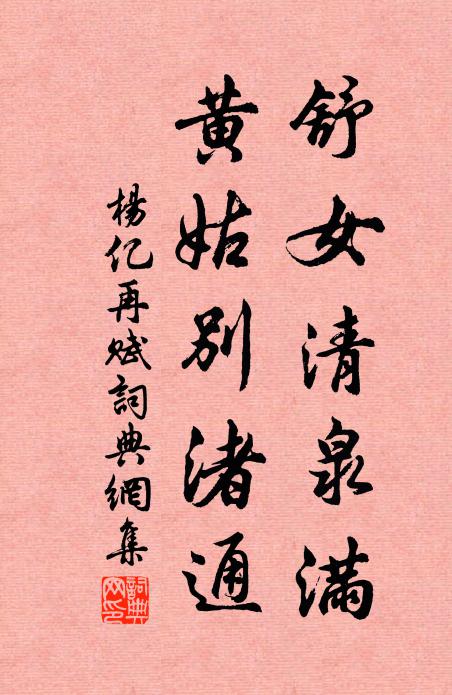 舒女清泉滿
黄姑別渚通
楊亿再賦詞典網集
詞典网印